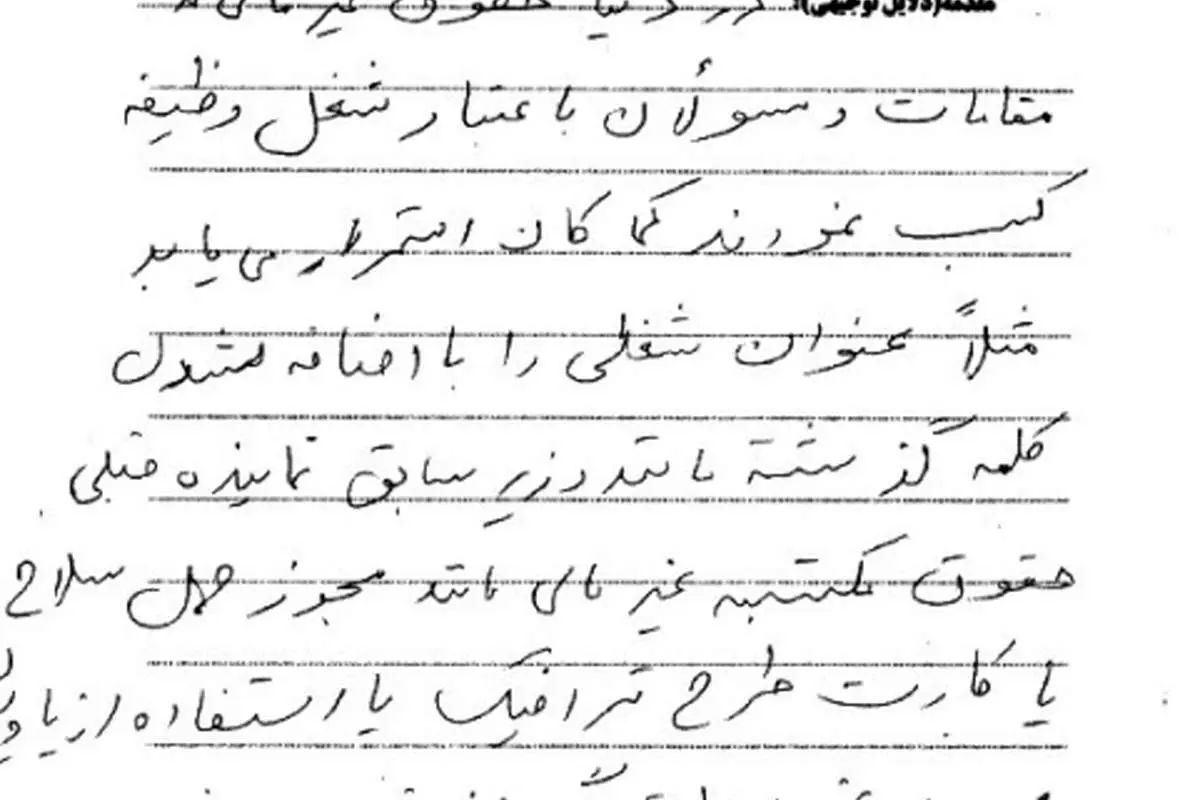 مقدمه (دلایل توجیهی): در دنیا حقوق غیر مالی
مقامات و مسولأن با عتبار شغل وظیفه
کسب نمودند کما کان استمرار می یابد
مثلاً عنوان شغلی را با اضافه نمودن
کلمه گذشته مانند وزیر سابق نماینده قبلی
حقوق مکتسبه غیر مالی مانند مجوز حمل سلاح
یا کارت طرح ترافیک یا استفاده از